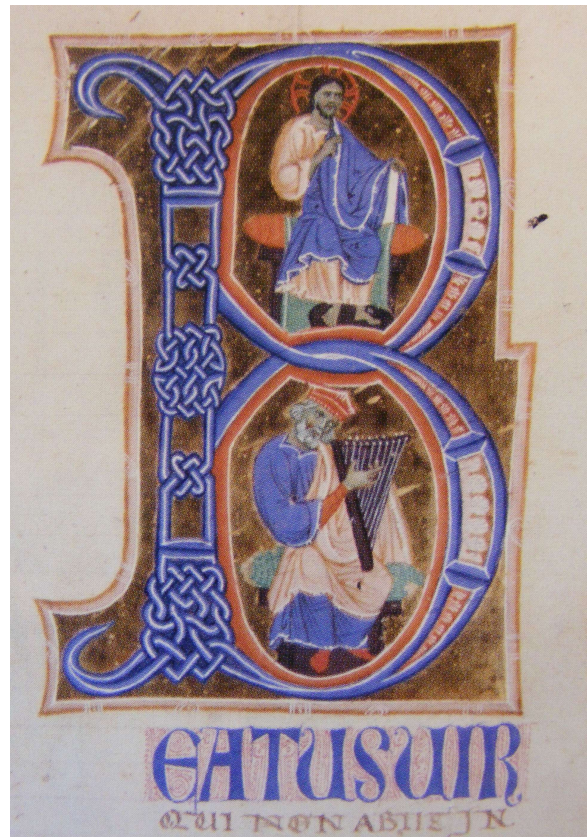 B
EATUSUIR
QUI NON ABIIE IN